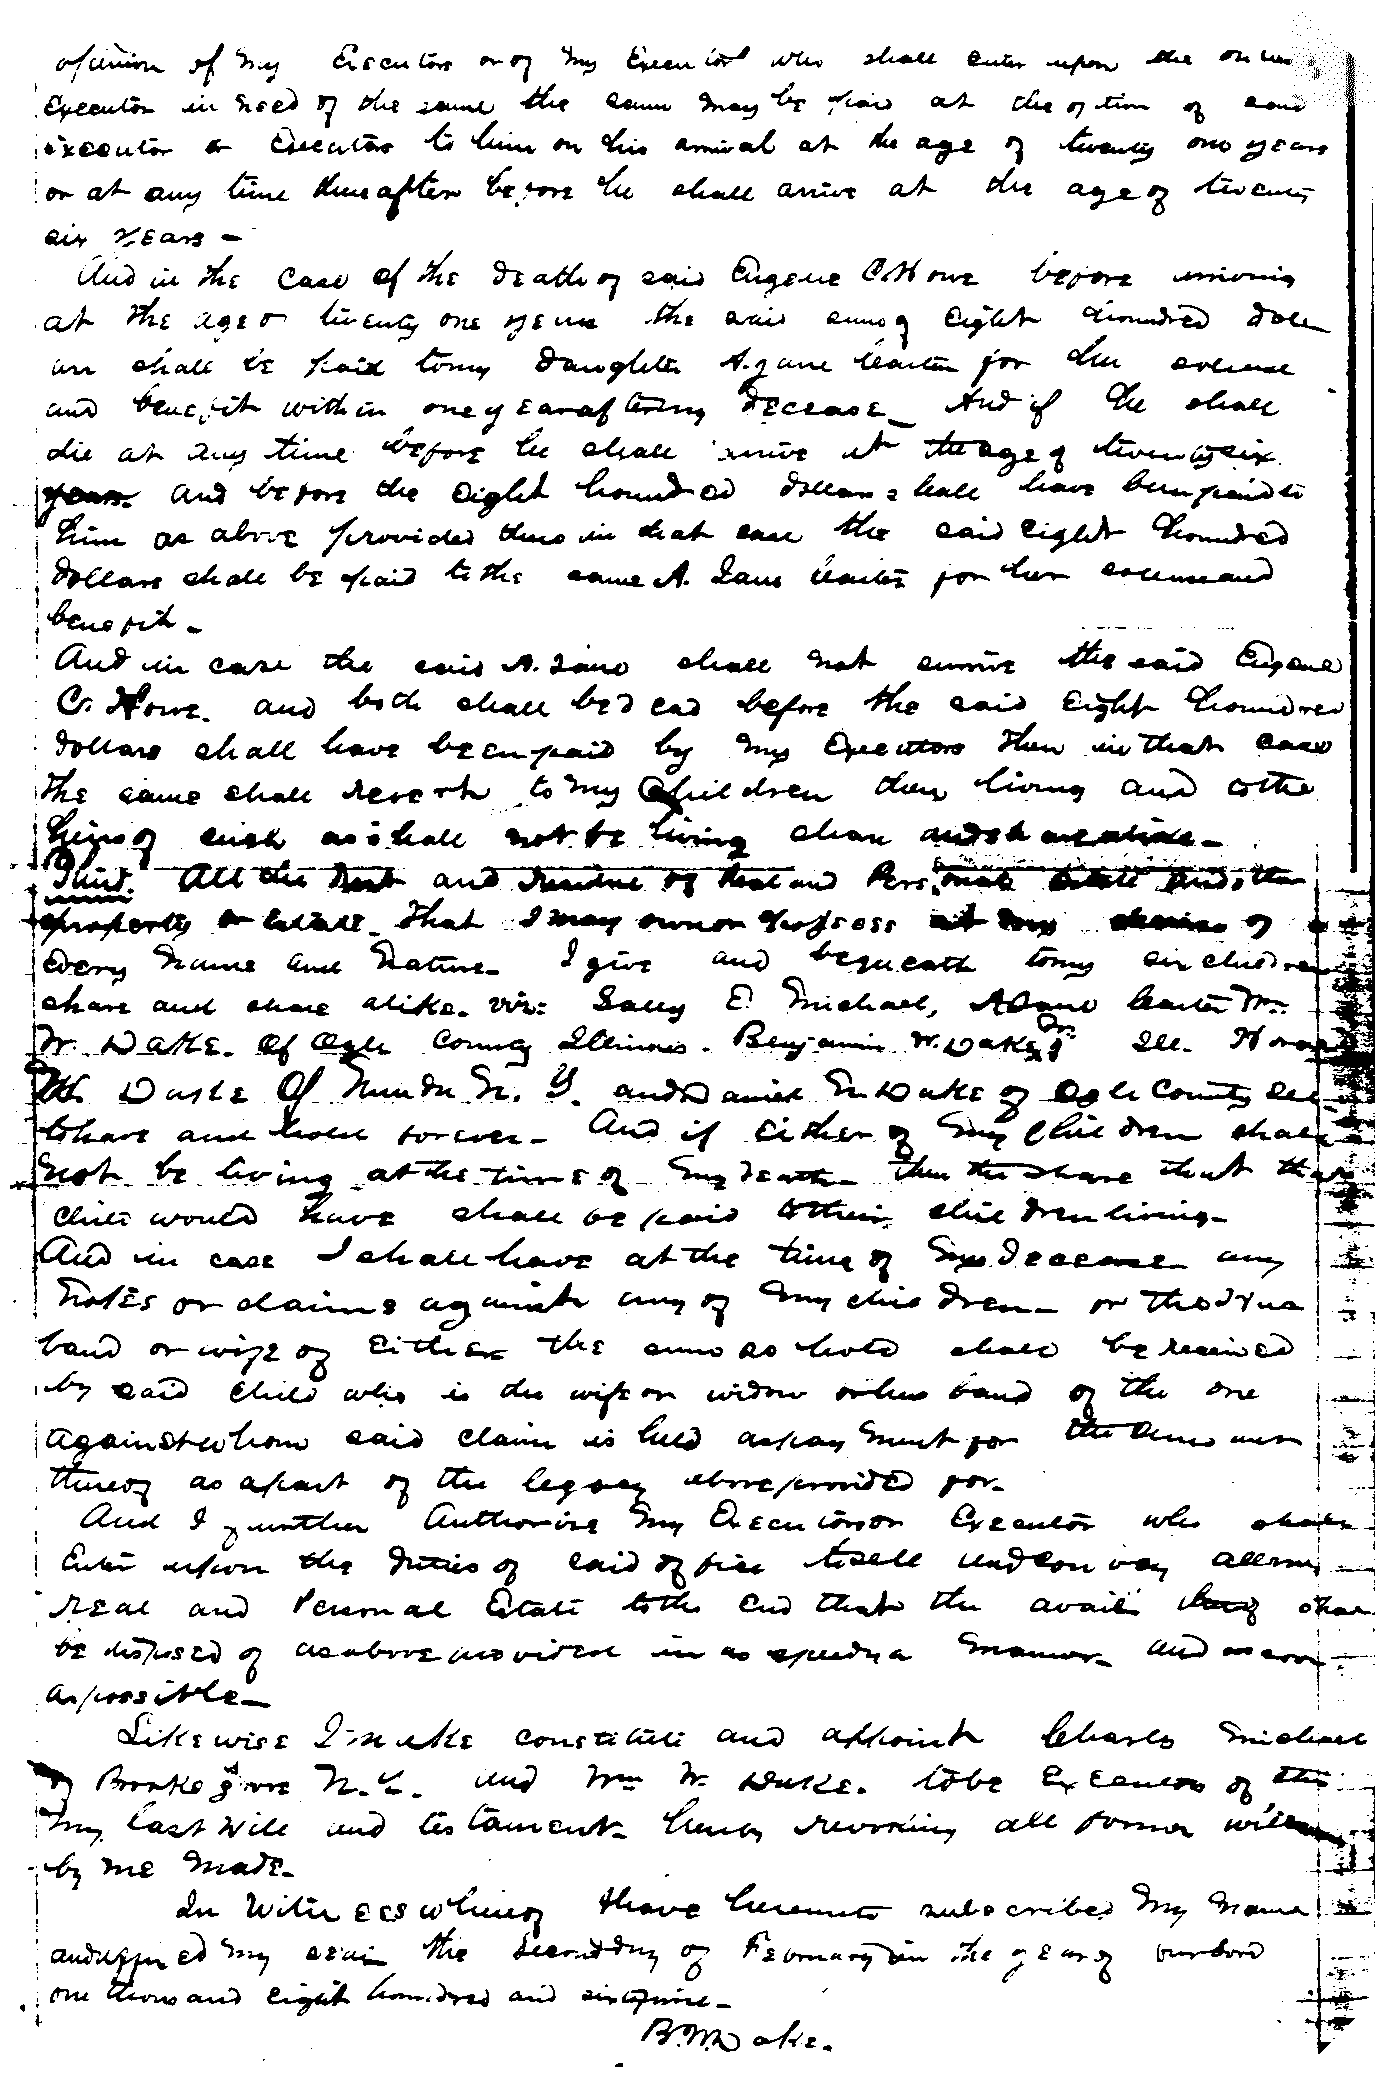 opinion of my Executors or of my Executor who shall enter upon the
Executor in need of the same the same may be paid at the option of said
executor or Executors to him on his arrival at the age of twenty one years
or at any time thereafter before he shall arrive at the age of twenty
six years -
And in the case of the death of said Eugene C. Howe before arriving
at the age of twenty one years the said sum of Eight houndred doll
ars shall be paid to my daughter A. Jane Carter for her
and benefit within one year after my decease - And if he shall
die at any time before he shall arrive at the age of twenty six
years. and before the eight houndred dollars shall have been paid to
him as above provided thus in that case the said eight houndred
dollars shall be paid to the same A. Jane Carter for her and
benefit -
And in case the said A. Jane shall not survive the said Eugene
C. Howe. and both shall be dead before the said eight houndred
dollars shall have been paid by my Executors then in that case
the same shall revert to my Children then living and to the
heirs of such as shall not be living share and share alike -
Third. All the Rest and residue of Real and Personal estate and other
property or Estate. That I may own or possess at my of
every Name and Nature - I give and bequeath to my six children
share and share alike. viz: Sally E Michael, A Jane Carter Wm.
W. Dake. Of Ogle County Illinois. Benjamin W. Dake Jr. Ill.
Dake Of Nunda N. Y. and Daniel N. Dake of Ogle County Ill
to have and hold forever - And if either of my Children shall
not be living at the time of my death - then the share that that
child would have shall be paid to their children living -
And in case I shall have at the time of my decease any
Notes or claims against any of my children - or the hus
band or wife of either the same so held shall be received
by said child who is the wife or widow or husband of the one
against whom said claim is held as payment for the amount
thereof as a part of the legacy above provided for -
And I further Authorise my Executors or Executor who shall
Enter upon the duties of said office to sell and convey all my
real and Personal Estate to the end that the avails shall
be disposed of as above provided in as speedy a manner - and as soon
as possible -
Likewise I make constitute and appoint Charles Michael
of Brooks Grove N.Y. and Wm W. Dake. to be Executors of this
my last Will and testament - hereby revoking all former wills
by me made -
In Witness whereof I have hereunto subscribed my Name
and affixed my seal the second day of February in the year of our Lord
one thousand eight houndred and sixty nine -
B. W. Dake.